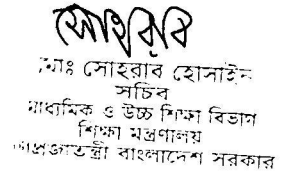 সোহরাব
মোঃ সোহরাব হোসাইন
সচিব
মাধ্যমিক ও উচ্চ শিক্ষা বিভাগ
শিক্ষা মন্ত্রণালয়
গণপ্রজাতন্ত্রী বাংলাদেশ সরকার